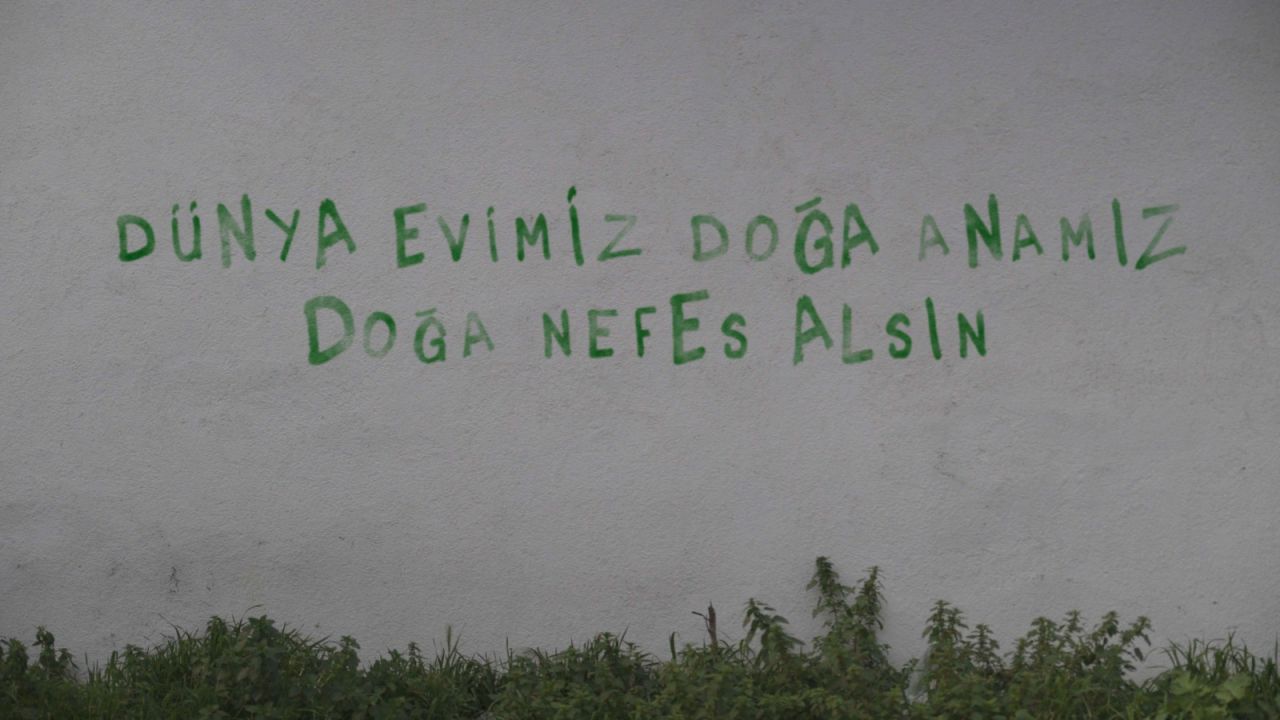 DÜNYA EVİMİZ DOĞA ANAMIZ
DOĞA NEFES ALSIN